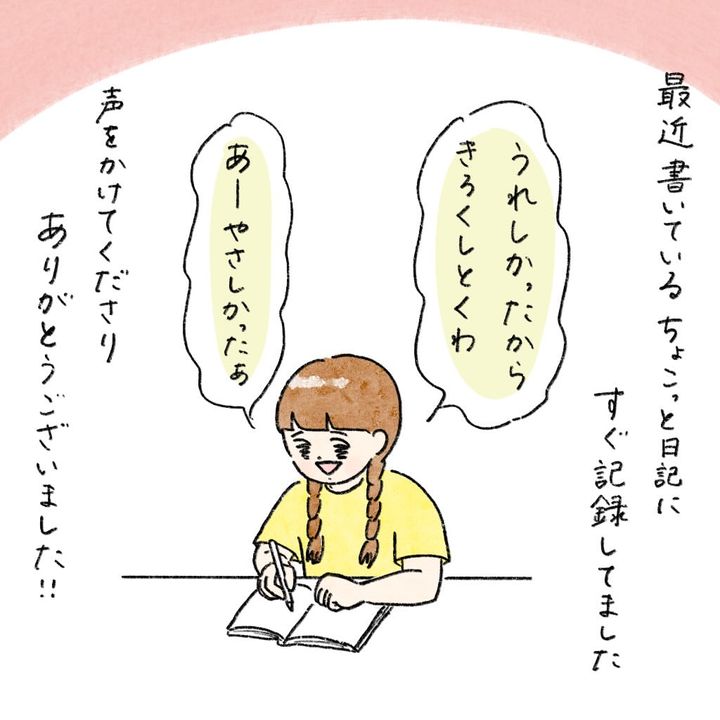 最近書いているちょこっと日記に
すぐ記録してました
うれしかったから
きろくしとくわ
あーやさしかったぁ
声をかけてくださり
ありがとうございました!!